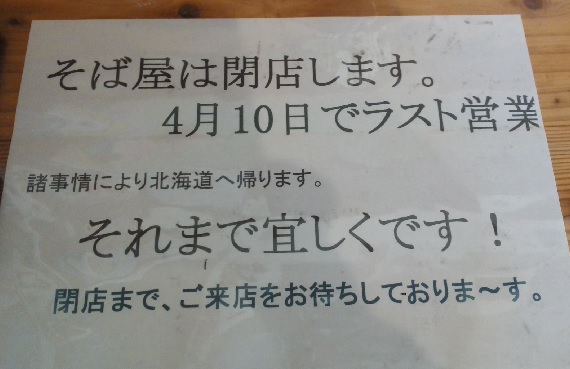 そば屋は閉店します。
4月10日でラスト営業
諸事情により北海道へ帰ります。
それまで宜しくです！
閉店まで、ご来店をお待ちしておりま～す。